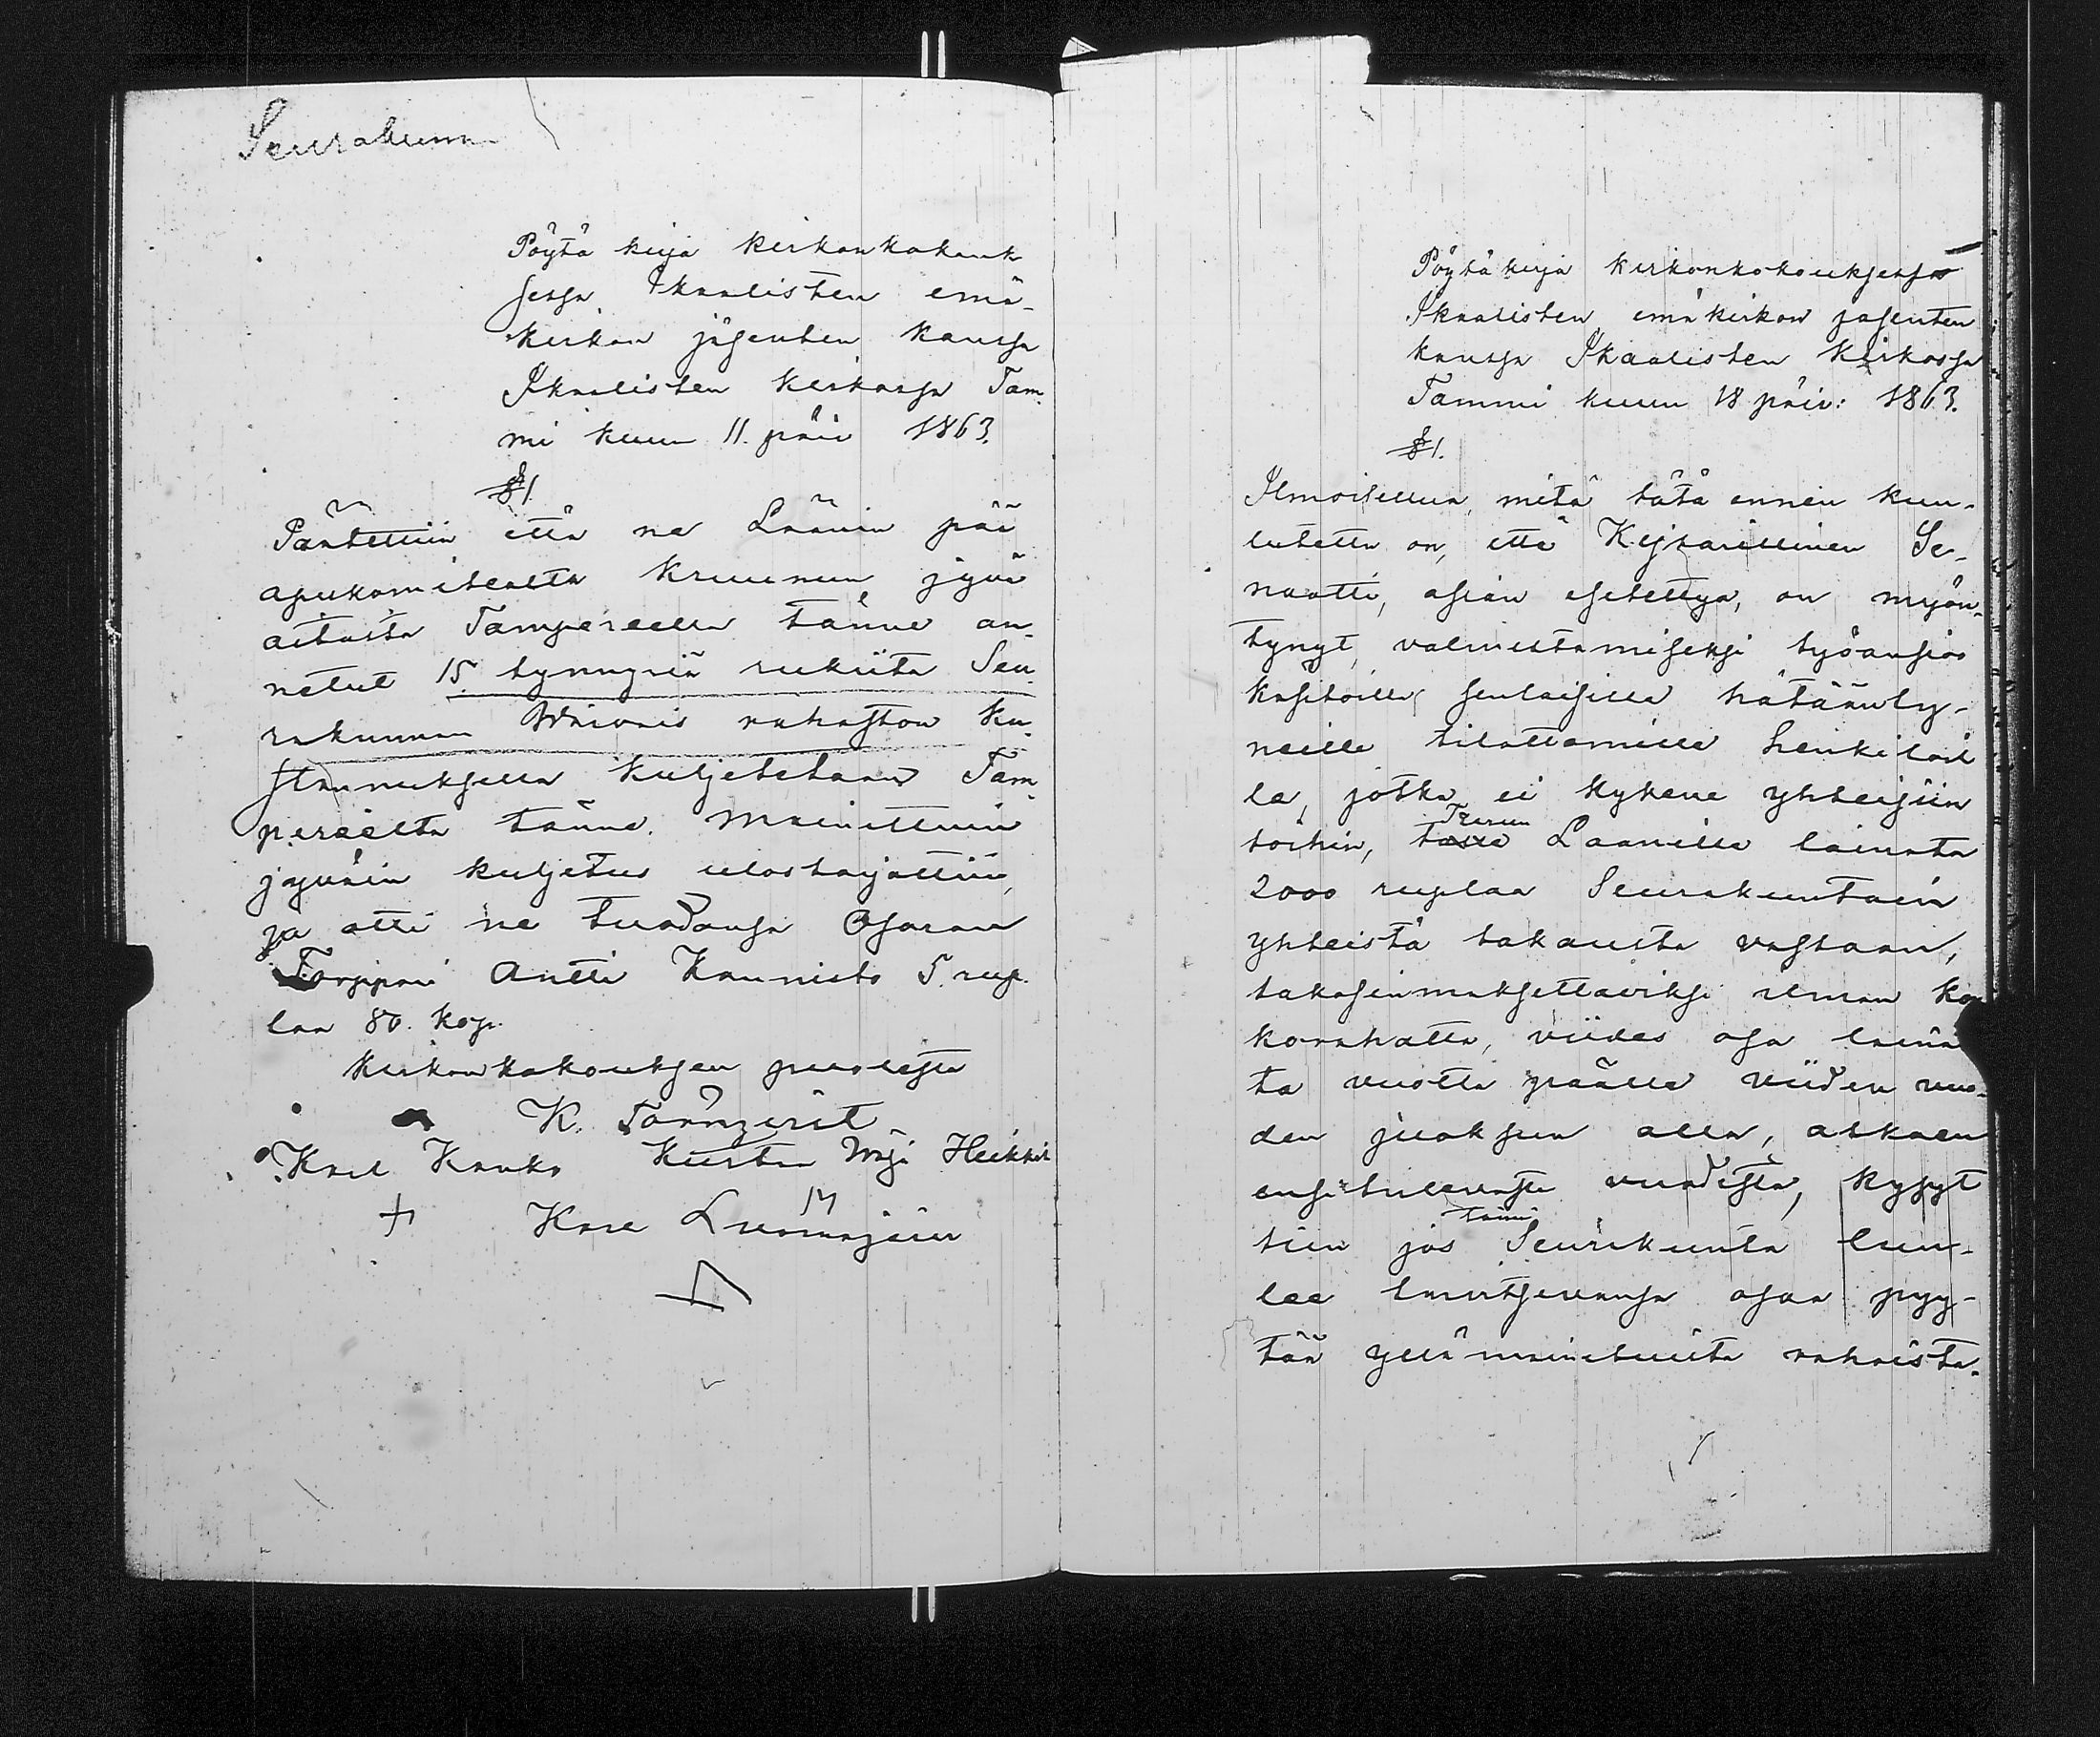 Seurakunn
Pöytä kirja kirkonkokouk
sessa Ikaalisten emä-
kirkon jäsenten kanssa
Ikaalisten kirkossa Tam-
mi kuun 11. päiv 1863.
§1.
Päätettiin että ne Läänin pää
apukomitealta Kruunun jyvä
aitasta Tampereella tänne an-
netut 15. tynnyriä rukiita Seu
rakunnan Waivais rahaston ku-
stannuksella kuljetetaan Tam-
pereelta tänne. Mainittuin
jyväin kuljetus ulostarjottiin,
ja otti ne tuodansa Osaran
Torppari Antti Kaunisto 5. rup-
laa 80. kop.
Kirkonkokouksen puolesta
K. Törnqvist
Karl Kauko Kustaa Yli Heikkil
Kare Luomajein
Pöytäkirja kirkonkokouksessa
Ikaalisten emäkirkon jäsenten
kanssa Ikaalisten kirkossa
Tammi kuun 18 päiv: 1863.
§1.
Ilmoitettua, mitä tätä ennen kuu-
lutettu on, että Kejsarillinen Se-
naatti, asian esitettyä, on myön-
tynyt, valmistamiseksi työansioo
käsitöillä sentaisille hätäänty-
neille tilattomille henkilöil
le, jotka ei kykene yhteisiin
töihin, Turun Läänille lainata
2000 ruplaa Seurakuntain
yhteistä takausta vastaan,
takasinmaksettaviksi ilman ko
korahatta, viides osa laina
ta vuotta päälle viiden vuo-
den juoksun alla, alkaen
ensitulevasta vuodesta, kysyt
tiin jos tämä Seurakunta luu-
lee tarvitsevansa osaa pyy-
tää yllämainituista rahoista.